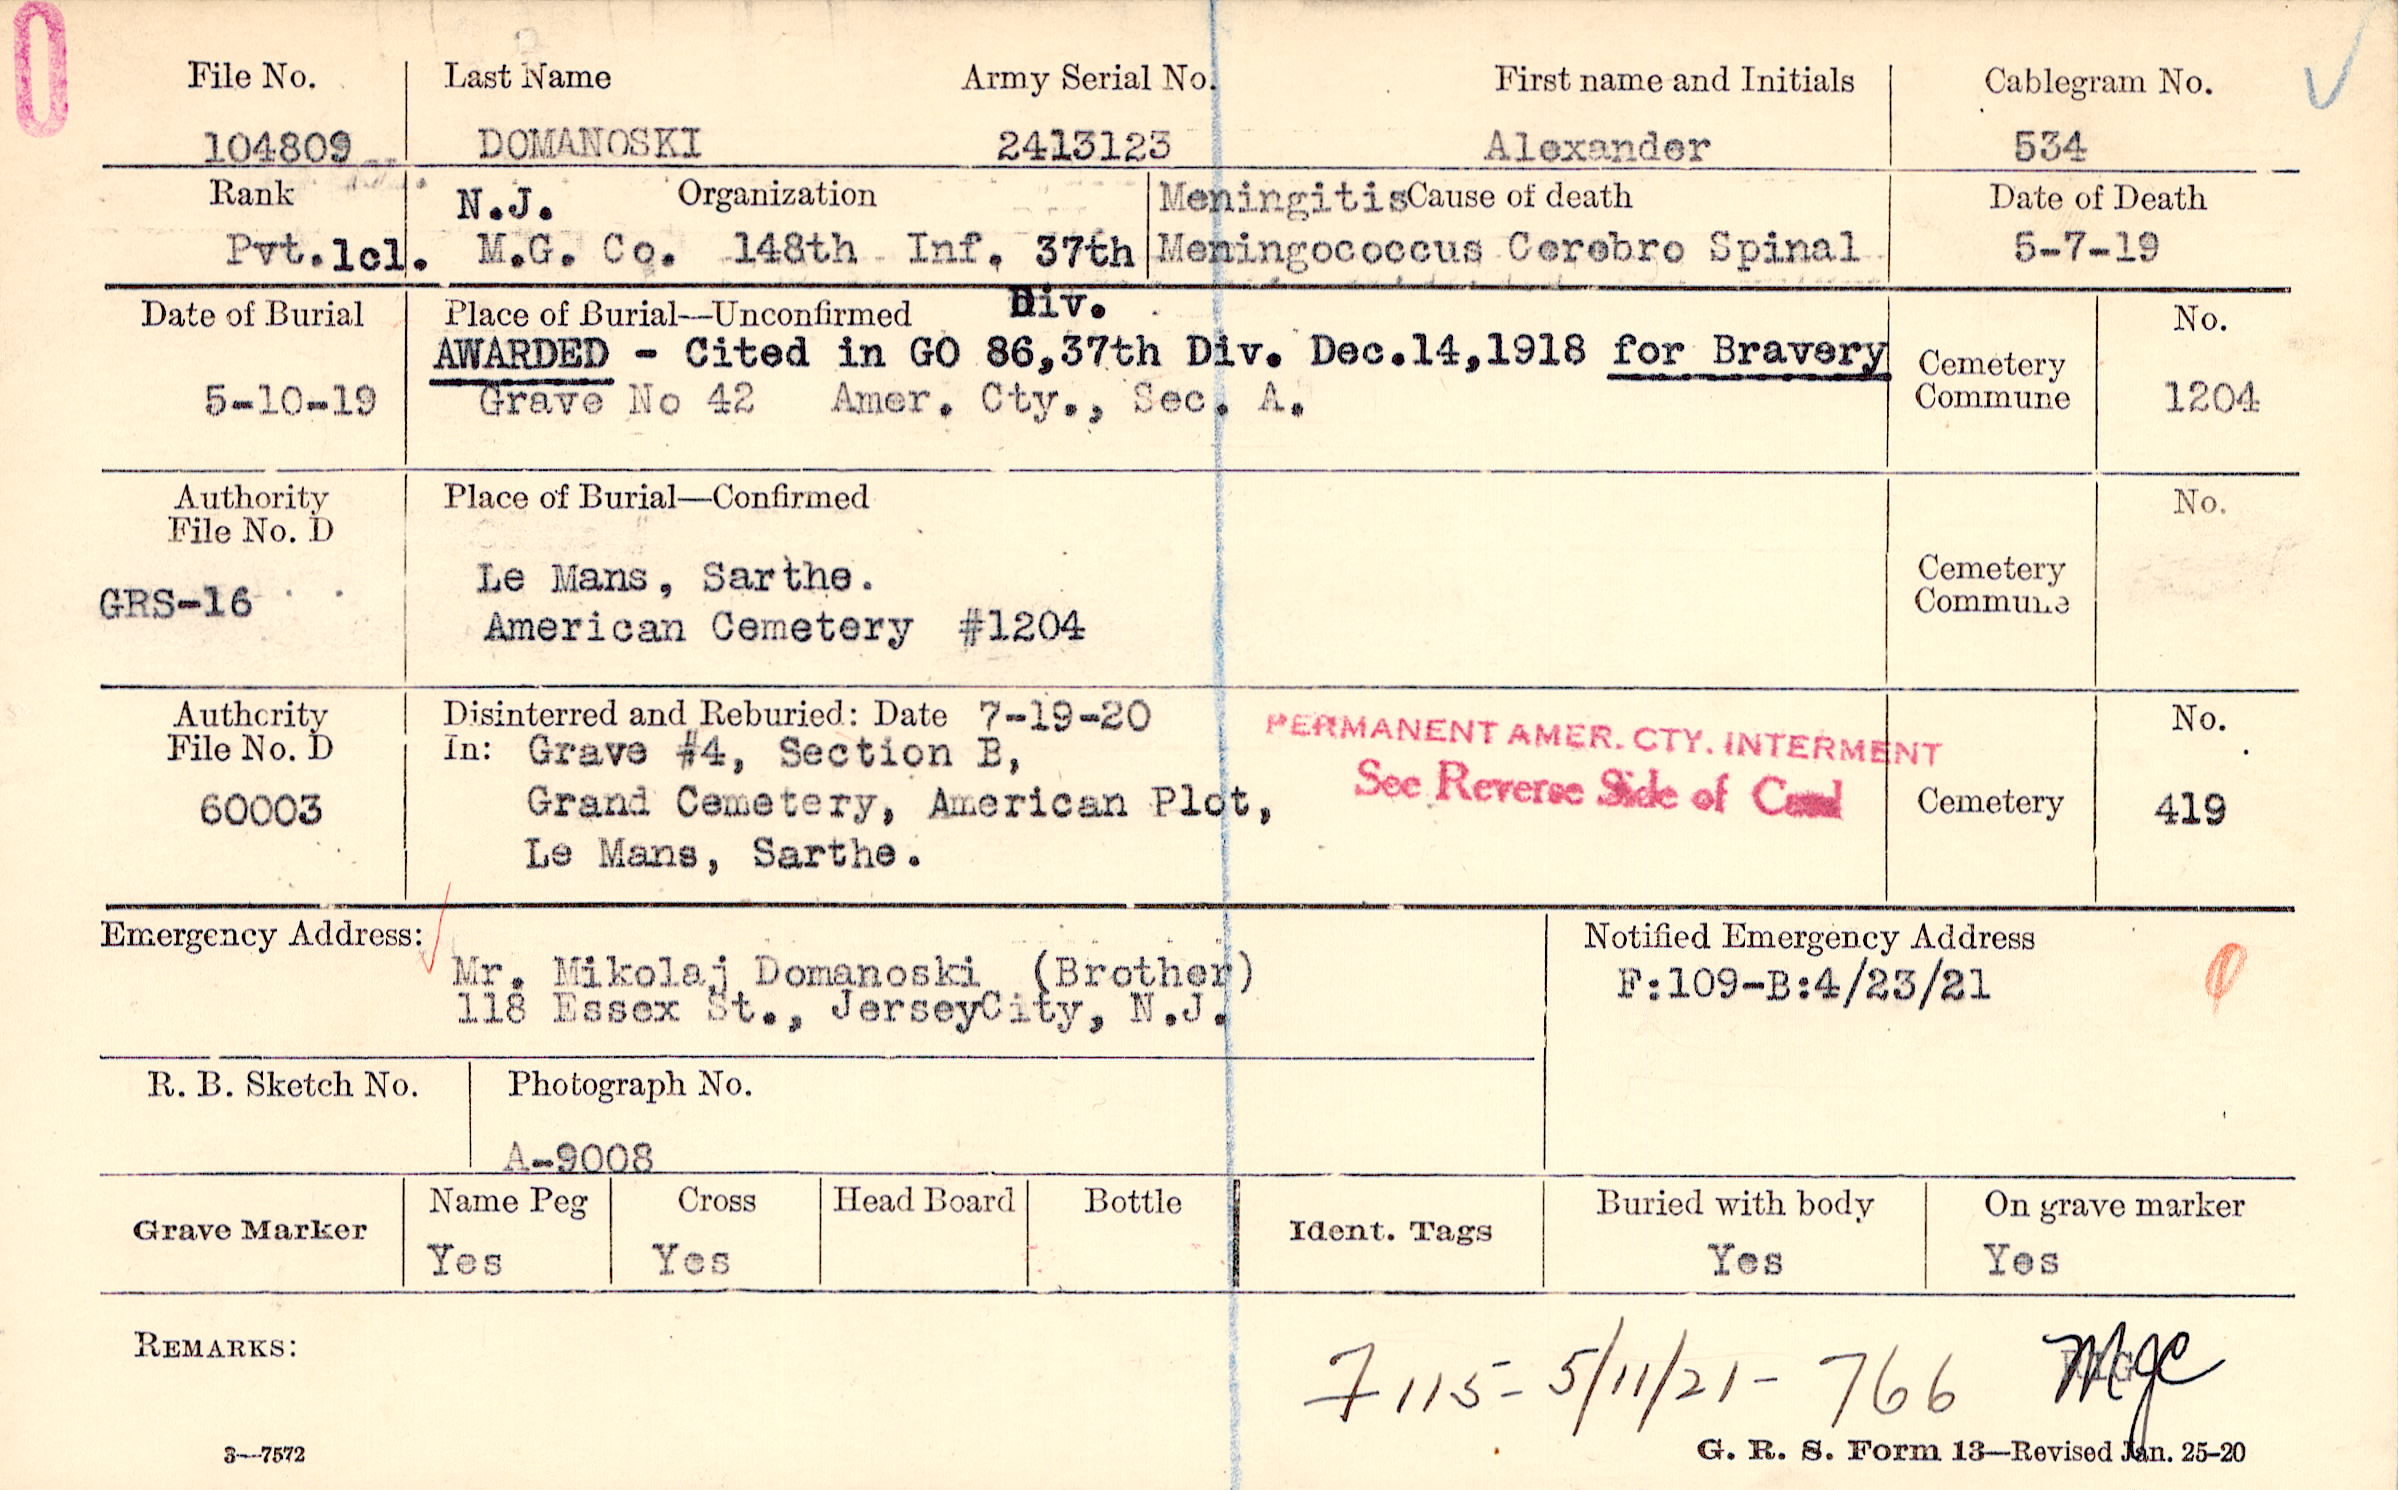 File No. Last Name Army Serial No. First name and Initials Cablegram No.
104809 DOMANOSKI 2413123 Alexander 534
Rank N.J. Organization Meningitis Cause of death Date of Death
Pvt.1cl. M.G. Co. 148th Inf. 37th Meningococcus Cerebro Spinal 5-7-19
Div.
Date of Burial Place of Burial—Unconfirmed No.
AWARDED - Cited in GO 86,37th Div. Dec.14,1918 for Bravery
5-10-19 Grave No 42 Amer. Cty., Sec. A. 1204
Cemetery
Commune
Authority Place of Burial—Confirmed No.
File No. D
GRS-16 Le Mans, Sarthe.
American Cemetery #1204
Cemetery
Commune
Authority Disinterred and Reburied: Date 7-19-20 No.
File No. D In: Grave #4, Section B,
60003 Grand Cemetery, American Plot, Cemetery 419
Le Mans, Sarthe.
PERMANENT AMER. CTY. INTERMENT
See Reverse Side of Card
Emergency Address: Notified Emergency Address
Mr. Mikolaj Domanoski (Brother) F:109-B:4/23/21
118 Essex St., JerseyCity, N.J.
R. B. Sketch No. Photograph No.
A-9008
Grave Marker Name Peg Cross Head Board Bottle Ident. Tags Buried with body On grave marker
Yes Yes Yes Yes
REMARKS:
7115- 5/11/21- 766 MJC
3—7572 G. R. S. Form 13—Revised Jan. 25-20